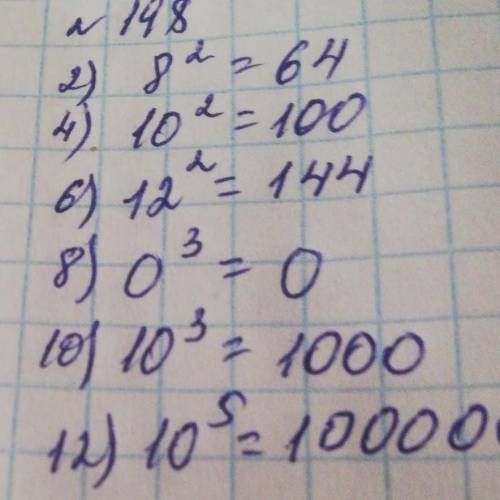 № 148
2) 8² = 64
4) 10² = 100
6) 12² = 144
8) 0³ = 0
10) 10³ = 1000
12) 10⁵ = 10000